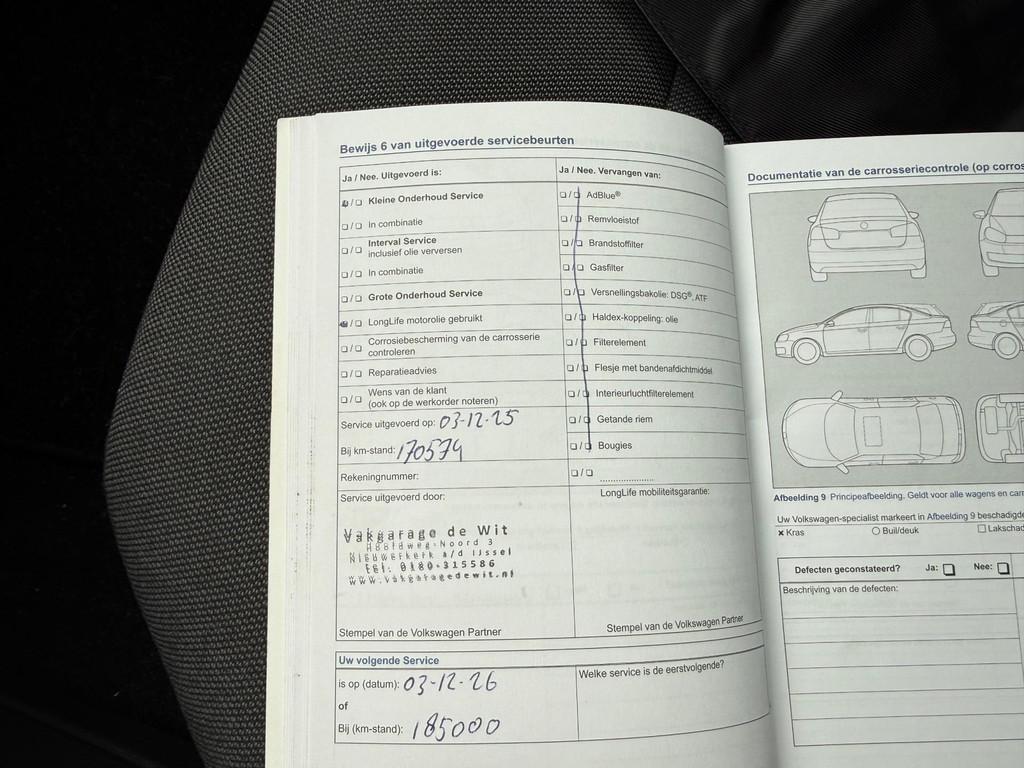 Bewijs 6 van uitgevoerde servicebeurten
Ja / Nee. Uitgevoerd is:
Kleine Onderhoud Service
In combinatie
Interval Service
inclusief olie verversen
In combinatie
Grote Onderhoud Service
LongLife motorolie gebruikt
Corrosiebescherming van de carrosserie
controleren
Reparatieadvies
Wens van de klant
(ook op de werkorder noteren)
Service uitgevoerd op: 03-12-25
Bij km-stand: 170574
Rekeningnummer:
Service uitgevoerd door:
Vakgarage de Wit
Hoofdweg-Noord 3
Nieuwerkerk a/d IJssel
tel. 0180-315586
www.vakgaragedewit.nl
Stempel van de Volkswagen Partner
Ja / Nee. Vervangen van:
AdBlue®
Remvloeistof
Brandstoffilter
Gasfilter
Versnellingsbakolie: DSG®, ATF
Haldex-koppeling: olie
Filterelement
Flesje met bandenafdichtmiddel
Interieurluchtfilterelement
Getande riem
Bougies
LongLife mobiliteitsgarantie:
Stempel van de Volkswagen Partner
Uw volgende Service
is op (datum): 03-12-26
of
Bij (km-stand): 185000
Welke service is de eerstvolgende?
Documentatie van de carrosseriecontrole (op
Afbeelding 9 Principeafbeelding. Geldt voor alle wagens en
Uw Volkswagen-specialist markeert in Afbeelding 9
x Kras
Buil/deuk
Defecten geconstateerd? Ja: Nee:
Beschrijving van de defecten: